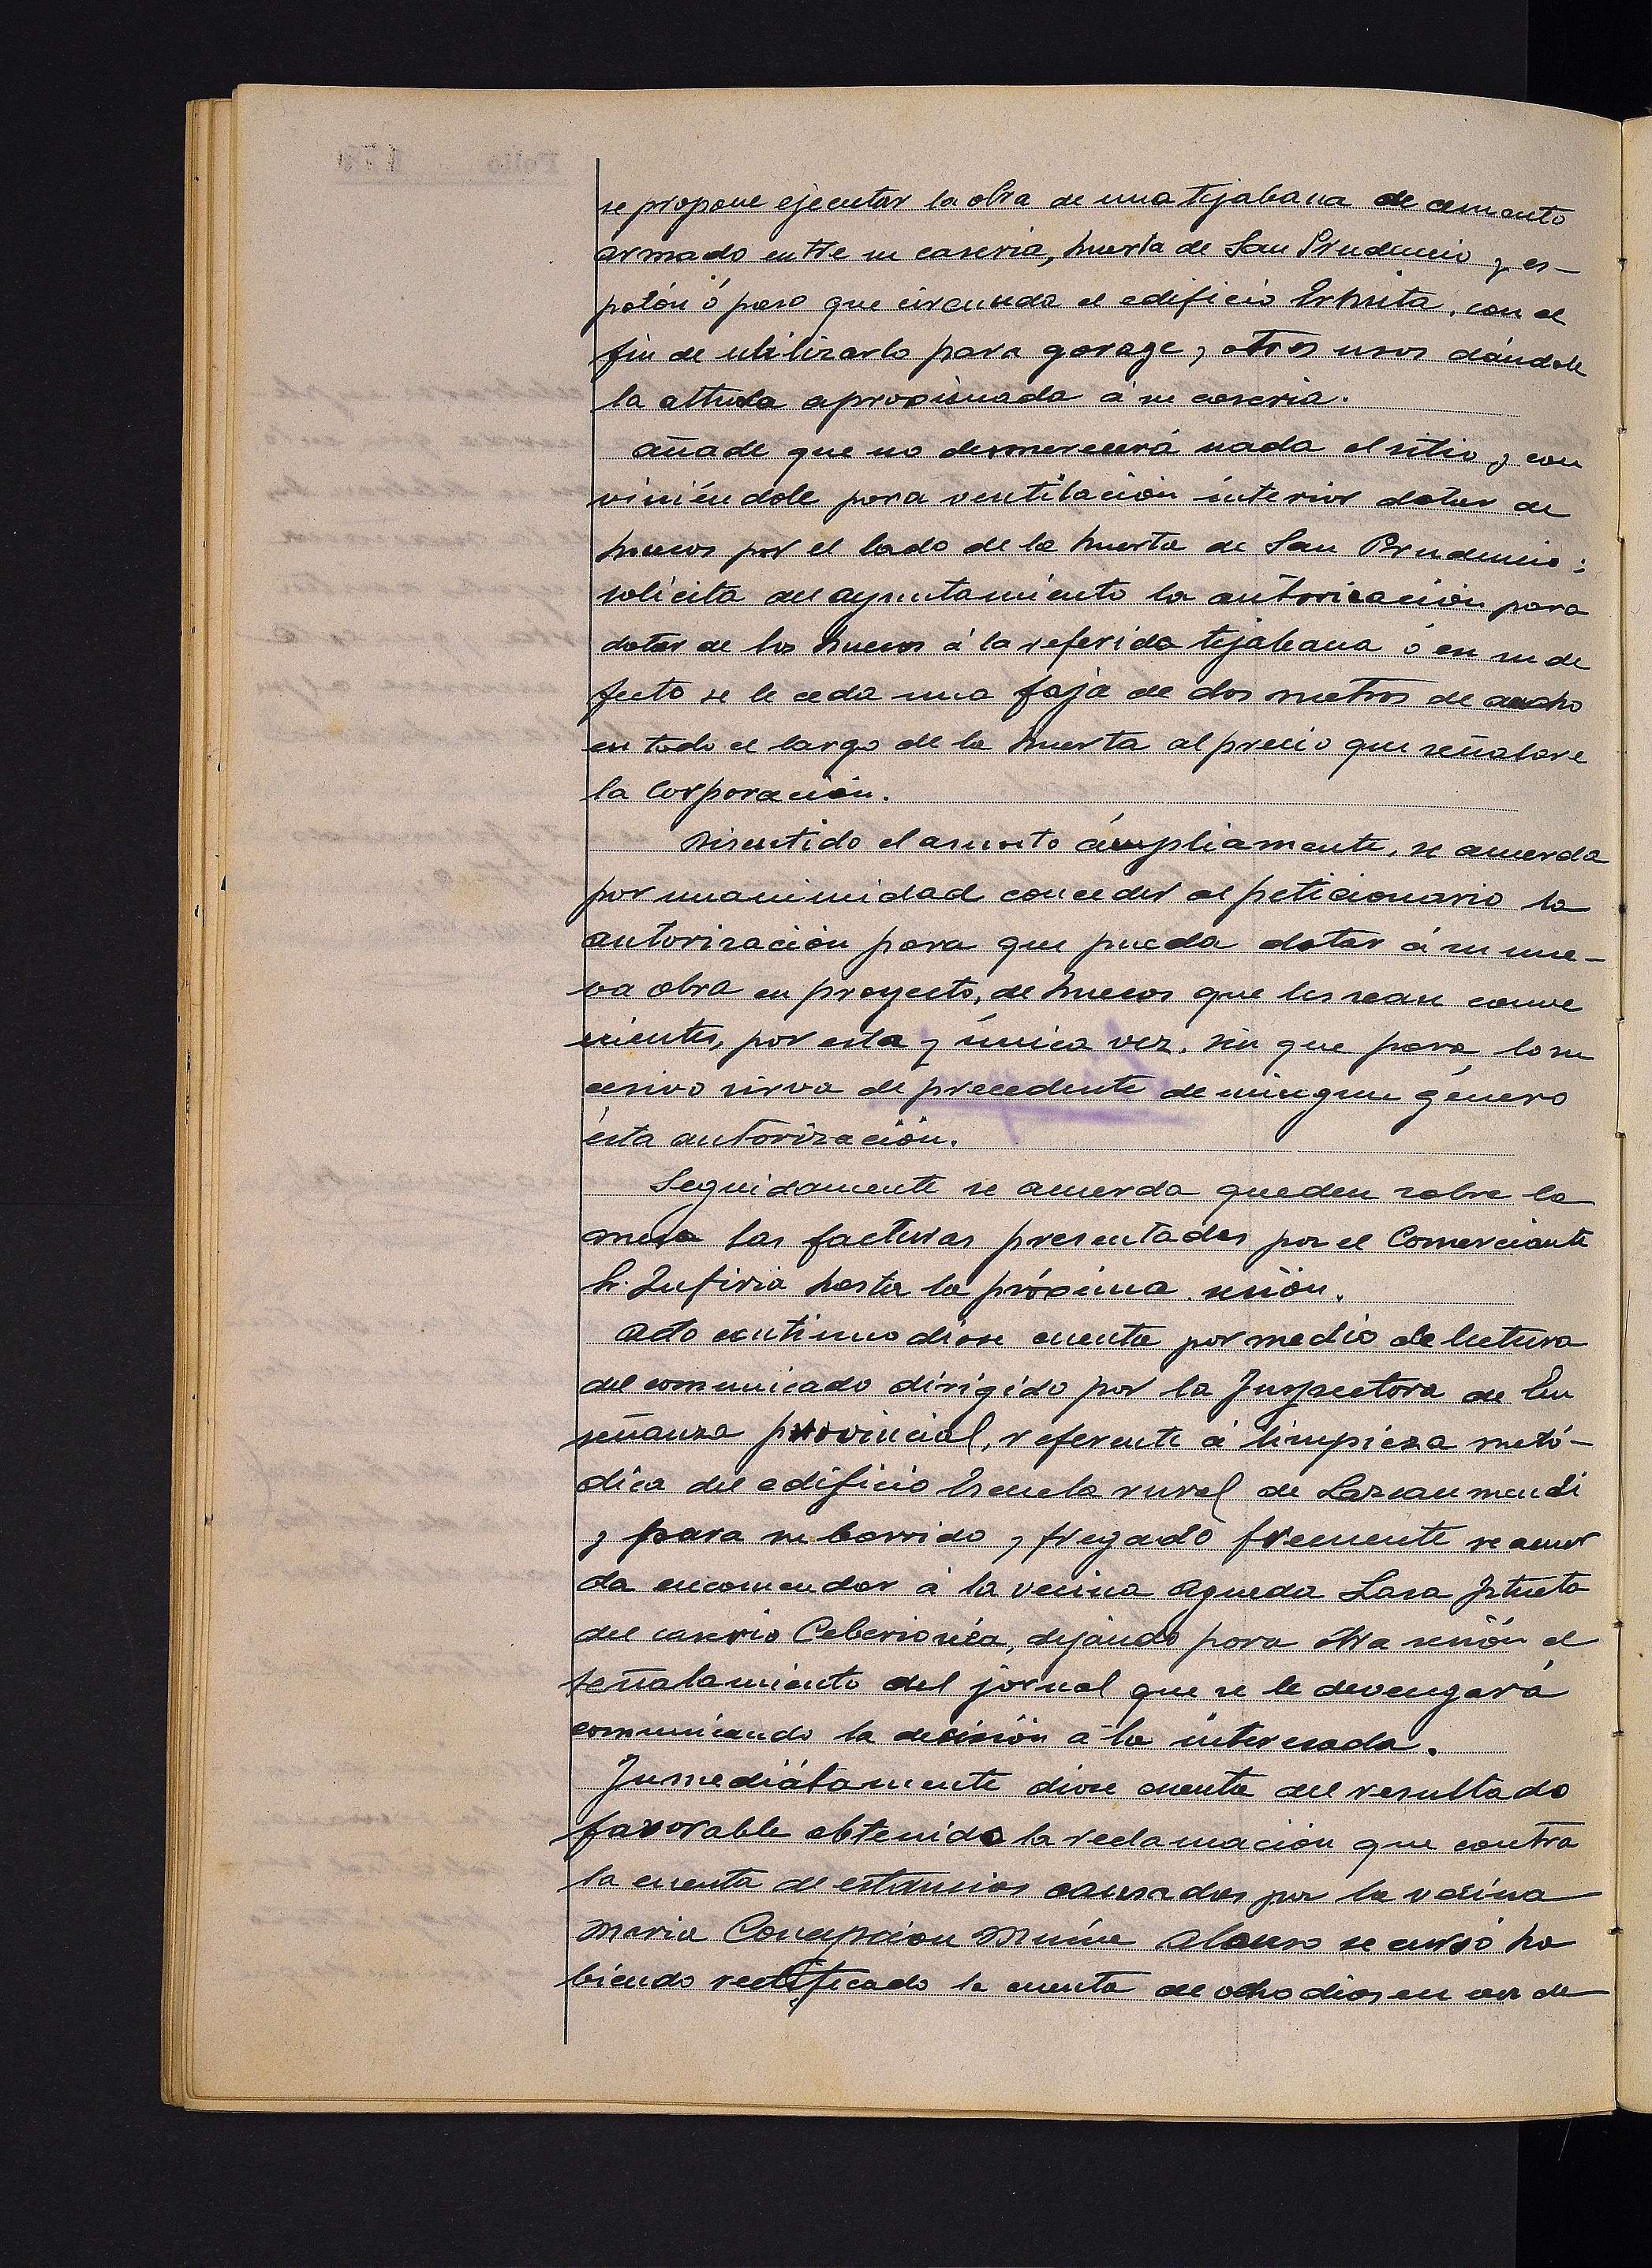 se propone ejecutar la obra de una tejabana de cemento
armado entre su caseria, huerta de San Prudencio y es-
polón ó paso que circunda el edificio Ermita, con el
fin de utilizarlo para garage y otros usos dándole
la altura aproximada á su caseria.
añade que no desmerecerá nada el sitio y con
viniéndole para ventilación interior dotar de
huecos por el lado de la huerta de San Prudencio;
solicita del ayuntamiento la autorización para
dotar de los huecos á la referida tejabana ó en su de
fecto se le ceda una faja de dos metros de ancho
en todo el largo de la huerta al precio que señalare
la Corporación.
Discutido el asunto ámpliamente, se acuerda
por unanimidad conceder al peticionario la
autorización para que pueda dotar á su nue-
va obra en proyecto, de huecos que les sean conve
nientes, por esta y única vez, sin que para lo su
cesivo sirva de precedente de ningun género
ésta autorización.
Seguidamente se acuerda queden sobre la
mesa las facturas presentadas por el Comerciante
Sr. hasta la próxima sesión.
Acto continuo dióse cuenta por medio de lectura
del comunicado dirigido por la Inspectora de En
señanza provincial, referente á limpieza metó-
dica del edificio Escuela rural de Lazcaumendi
y para su barrido y fregado frecuente se acuer
da encomendar á la vecina Agueda Lasa Iztueta
del caserio dejando para otra sesión el
señalamiento del jornal que se le devengará
comunicando la decisión á la interesada.
Inmediátamente dióse cuenta del resultado
favorable obtenido la reclamación que contra
la cuenta de estancias causadas por la vecina
Maria Concepcion Alonso se cursó ha
biendo rectificado la cuenta de ocho dias en vez de